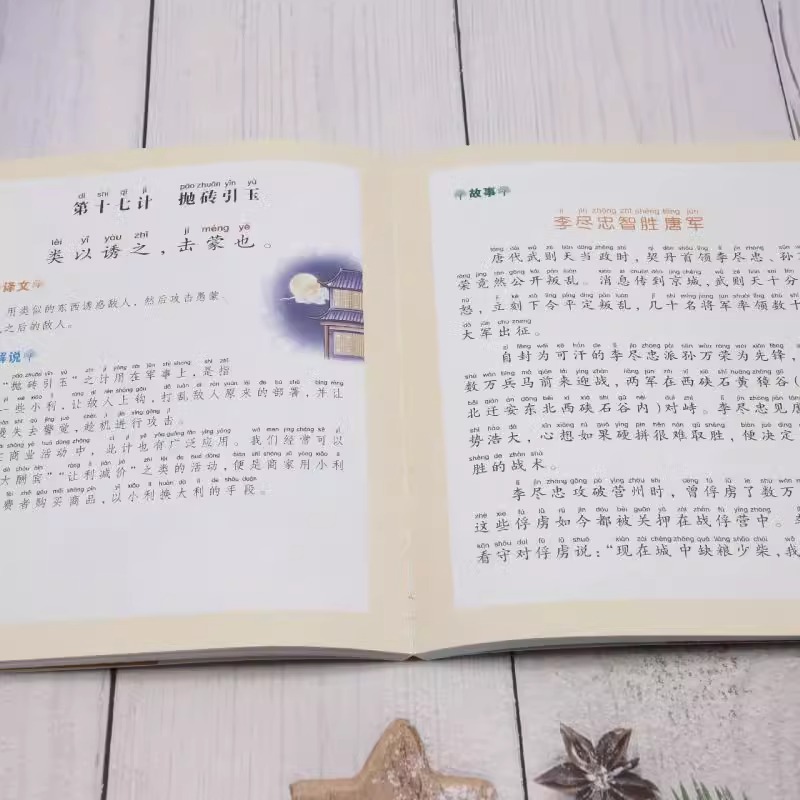 第十七计 抛砖引玉
类以诱之，击蒙也。
译文
用类似的东西诱惑敌人，然后攻击愚蒙、
之后的敌人。
解说
“抛砖引玉”之计用在军事上，是指
一些小利，让敌人上钩，打乱敌人原来的部署，并让
失去警觉，趁机进行攻击。
在商业活动中，此计也有广泛应用。我们经常可以
大酬宾”“让利减价”之类的活动，便是商家用小利
费者购买商品，以小利换大利的手段。
故事
李尽忠智胜唐军
唐代武则天当政时，契丹首领李尽忠、孙万
荣竟然公开叛乱。消息传到京城，武则天十分
怒，立刻下令平定叛乱，几十名将军率领数十
大军出征。
自封为可汗的李尽忠派孙万荣为先锋，
数万兵马前来迎战，两军在西硖石黄獐谷（
北迁安东北西硖石谷内）对峙。李尽忠见唐
势浩大，心想如果硬拼很难取胜，便决定
胜的战术。
李尽忠攻破营州时，曾俘虏了数万
这些俘虏如今都被关押在战俘营中。李
看守对俘虏说：“现在城中缺粮少柴，我